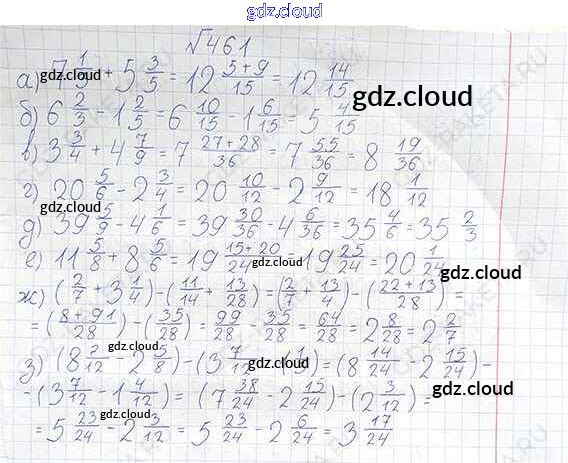 gdz.cloud
gdz.cloud
√461
а) 7 1/3 + 5 3/5 = 12 (5+9)/15 = 12 14/15
gdz.cloud
gdz.cloud
б) 6 2/3 - 1 2/5 = 6 10/15 - 1 6/15 = 5 4/15
в) 3 3/4 + 4 7/9 = 7 (27+28)/36 = 7 55/36 = 8 19/36
г) 20 5/6 - 2 3/4 = 20 10/12 - 2 9/12 = 18 1/12
gdz.cloud
д) 39 5/9 - 4 1/6 = 39 30/36 - 4 6/36 = 35 4/6 = 35 2/3
е) 11 5/8 + 8 5/6 = 19 (15+20)/24 = 19 25/24 = 20 1/24
gdz.cloud
gdz.cloud
ж) (2/7 + 3 1/4) - (11/14 + 13/28) = (2/7 + 13/4) - ((22+13)/28) =
= ((8+91)/28) - (35/28) = 99/28 - 35/28 = 64/28 = 2 8/28 = 2 2/7
з) (8 7/12 - 2 5/8) - (3 7/12 - 1 1/3) = (8 14/24 - 2 15/24) -
gdz.cloud
gdz.cloud
- (3 7/12 - 1 4/12) = (7 38/24 - 2 15/24) - (2 3/12) =
gdz.cloud
= 5 23/24 - 2 3/12 = 5 23/24 - 2 6/24 = 3 17/24
gdz.cloud